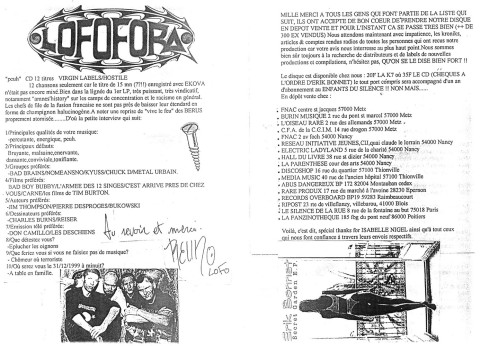 LOFOFORA
"peuh" CD 12 titres VIRGIN LABELS/HOSTILE
12 chansons seulement car le titre de 15 mn (?!!!) enregistré avec EKOVA
n'était pas encore mixé. Bien dans la lignée du 1er LP, très puissant, très vindicatif,
notamment "amnes'history" sur les camps de concentration et le racisme en général.
Les chefs de file de la fusion française ne sont pas près de baisser leur étendard en
forme de champignon halucinogène. A noter une reprise de "vive le feu" des BERUS
proprement atomisée........D'où la petite interview qui suit:
1/Principales qualités de votre musique:
-percutante, energique, peuh.
2/Principaux défauts:
3/Groupes préférés:
-BAD BRAINS/NOMEANSNO/KYUSS/CHUCK D/METAL URBAIN.
4/Films préférés:
-BAD BOY BUBBY/L'ARMEE DES 12 SINGES/C'EST ARRIVE PRES DE CHEZ
VOUS/CARNE/les films de TIM BURTON.
5/Auteurs préférés:
-JIM THOMPSON/PIERRE DESPROGES/BUKOWSKI
6/Dessinateurs préférés:
-CHARLES BURNS/REISER
7/Emission télé préférée:
-DON CAMILLO/LES DESCHIENS
8/Que détestez vous?
-éplucher les oignons
9/Que feriez vous si vous ne faisiez pas de musique?
- Chômeur où terroriste
10/Où serez vous le 31/12/1999 à minuit?
-A table en famille.
Au revoir et merci.
REUNO
LOFO
MILLE MERCI A TOUS LES GENS QUI FONT PARTIE DE LA LISTE QUI
SUIT, ILS ONT ACCEPTE DE BON COEUR DE PRENDRE NOTRE DISQUE
EN DEPOT VENTE ET POUR L'INSTANT CA SE PASSE TRES BIEN (++ DE
300 EX VENDUS) Nous attendons maintenant avec impatience, les kroniks,
articles & comptes rendus radios de toutes les personnes qui ont reçu notre
production car votre avis nous interresse au plus haut point. Nous sommes
bien sûr toujours à la recherche de distributeurs et de labels de nouvelles
productions et compilations, n'hésitez pas, QU'ON SE LE DISE BIEN FORT !!
Le disque est disponible chez nous : 20F LA K7 où 35F LE CD (CHEQUES A
L'ORDRE D'ERIK BONNET) le tout port compris sera accompagné d'un an
d'abonnement au ENFANTS DU SILENCE !! NON MAIS......
En dépôt vente chez :
- FNAC centre st jacques 57000 Metz
- BURIN MUSIQUE 2 rue du pont st marcel 57000 Metz
- L'OISEAU RARE 2 rue des clercs 57000 Metz
- C.F.A. de la C.C.I.M. 14 rue dragon 57000 Metz
- FNAC 2 av foch 54000 Nancy
- RESEAU INITIATIVE JEUNES, CIJ, quai claude le lorrain 54000 Nancy
- ELECTRIC LADYLAND 5 rue de la charité 54000 Nancy
- HALL DU LIVRE 38 rue st dizier 54000 Nancy
- LA PARENTHESE cour des arts 54000 Nancy
- DISCOSHOP 16 rue du quartier 57100 Thionville
- MEDIA MUSIC 40 rue de l'ancien hôpital 57100 Thionville
- ABUS DANGEREUX BP 172 82004 Montauban cedex
- RARE PRODUX 17 rue du marché à l'avoine 38230 Eperson
- RECORDS OVERBOARD BP19 59283 Raimbeaucourt
- RIPOST 23 rue de villefranay, villebarou, 41000 Blois
- LE SILENCE DE LA RUE 8 rue de la fontaine au but 75018 Paris
- LA FANZINOTHEQUE 185 fbg du pont neuf 86000 Poitiers
Voilà, c'est dit, spécial thanks for ISABELLE NIGEL ainsi qu'à tout ceux
qui nous font confiance à travers leurs envois respectifs.
Erik Bonnet
Secret Garden E.P.